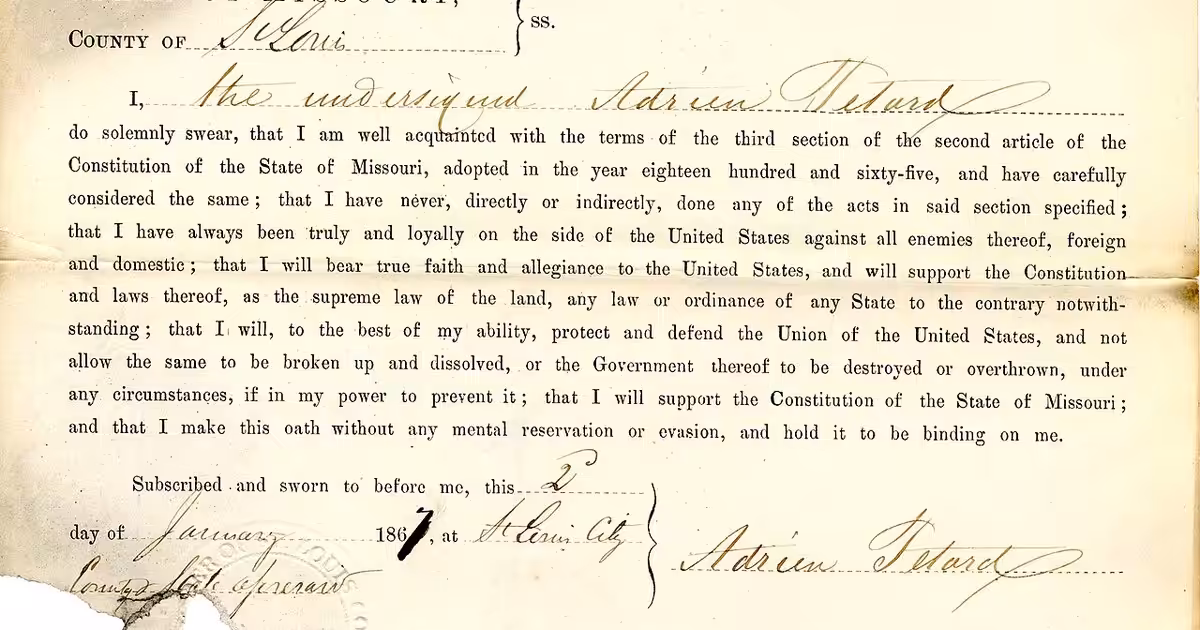 COUNTY OF St Louis } ss.
I, the undersigned Adrien Tetard
do solemnly swear, that I am well acquainted with the terms of the third section of the second article of the
Constitution of the State of Missouri, adopted in the year eighteen hundred and sixty-five, and have carefully
considered the same; that I have never, directly or indirectly, done any of the acts in said section specified;
that I have always been truly and loyally on the side of the United States against all enemies thereof, foreign
and domestic; that I will bear true faith and allegiance to the United States, and will support the Constitution
and laws thereof, as the supreme law of the land, any law or ordinance of any State to the contrary notwith-
standing; that I will, to the best of my ability, protect and defend the Union of the United States, and not
allow the same to be broken up and dissolved, or the Government thereof to be destroyed or overthrown, under
any circumstances, if in my power to prevent it; that I will support the Constitution of the State of Missouri;
and that I make this oath without any mental reservation or evasion, and hold it to be binding on me.
Subscribed and sworn to before me, this 2
day of January 1867, at St Louis City
County & State aforesaid
Adrien Tetard